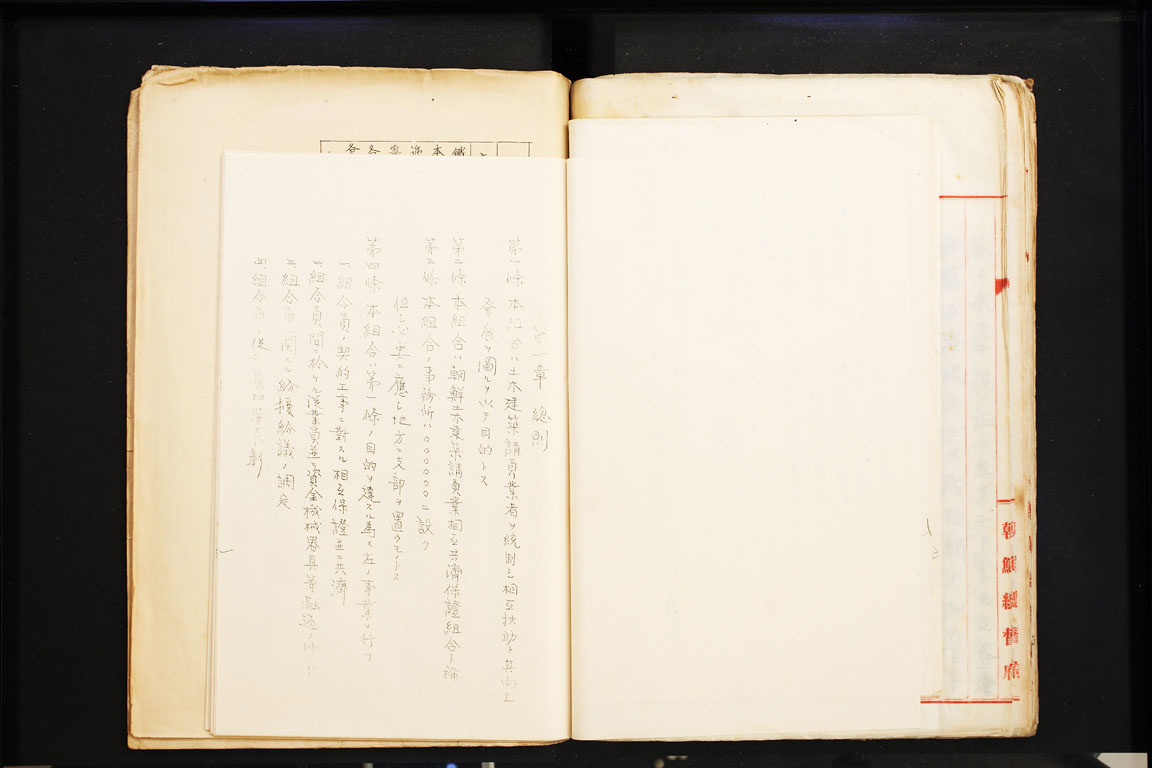 第一章 總則
第一條 本組合ハ土木建築請負業者ヲ統制シ相互扶助ト其向上
發展ヲ圖ルヲ以テ目的トス
第二條 本組合ハ朝鮮土木建築請負業相互共濟保證組合ト稱
第三條 本組合ノ事務所ハ〇〇〇〇〇〇ニ設ク
但シ必要ニ應シ地方ニ支部ヲ置クモノトス
第四條 本組合ハ第一條ノ目的ヲ達スル為メ左ノ事業ヲ行フ
一 組合員ノ契約工事ニ對スル相互保證並ニ共濟
二 組合員間ニ於ケル從業員並ニ資金機械器具等融通ノ仲介
三 組合員ニ関スル紛擾紛議ノ調定
四 組合員ノ從業員
彰
朝鮮總督府